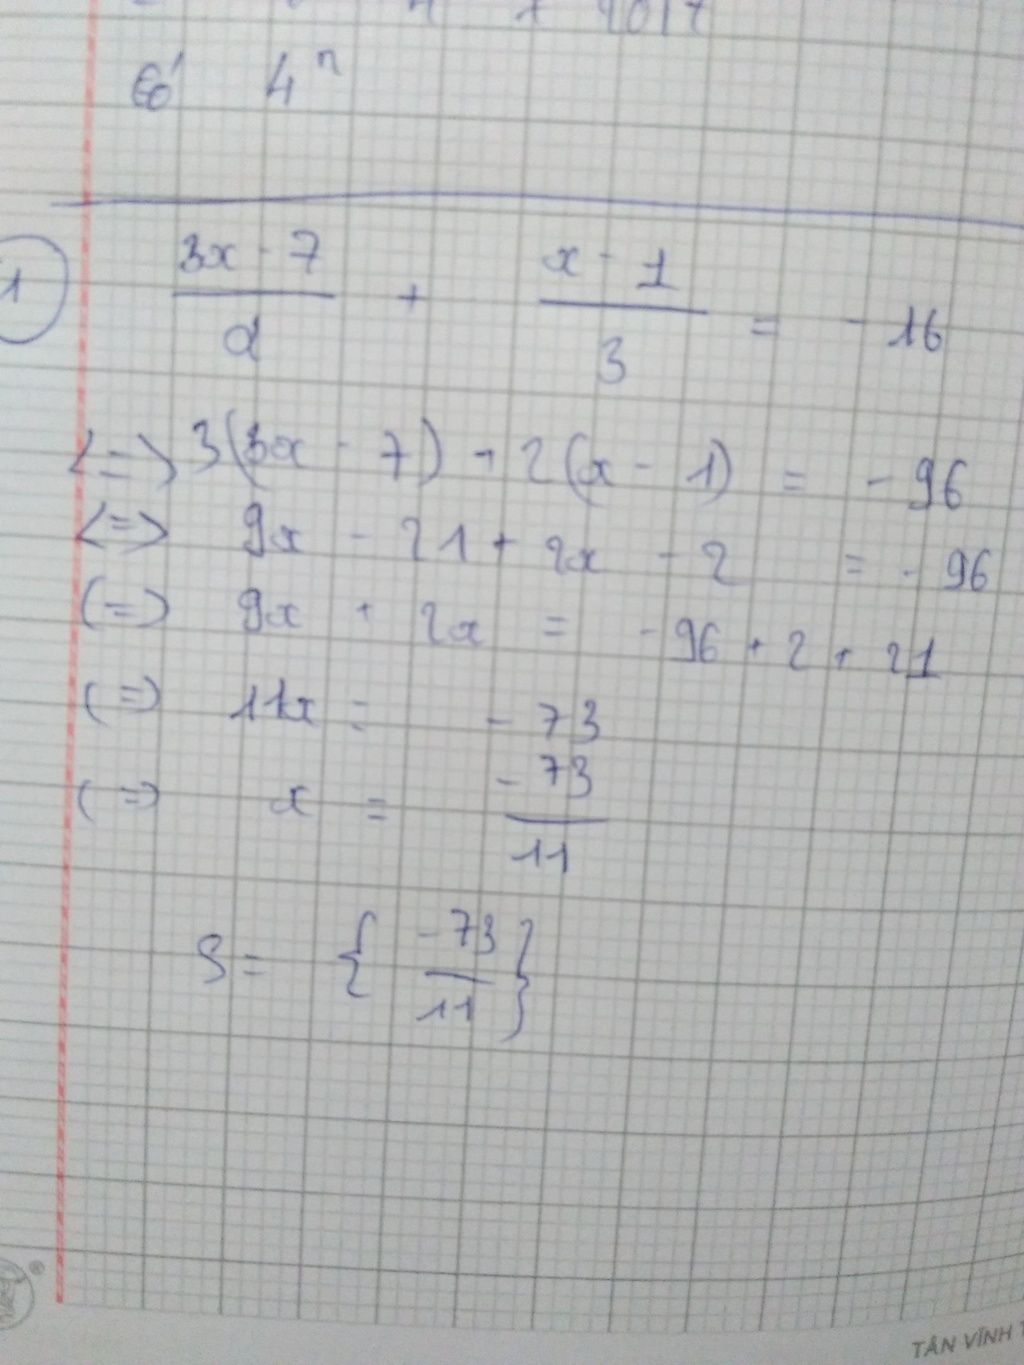 có 4ⁿ
1
3x - 7 / 2 + x - 1 / 3 = - 16
<=> 3(3x - 7) + 2(x - 1) = - 96
<=> 9x - 21 + 2x - 2 = - 96
(=) 9x + 2x = - 96 + 2 + 21
(=) 11x = - 73
(=) x = - 73 / 11
S = { - 73 / 11 }
TÂN VĨNH